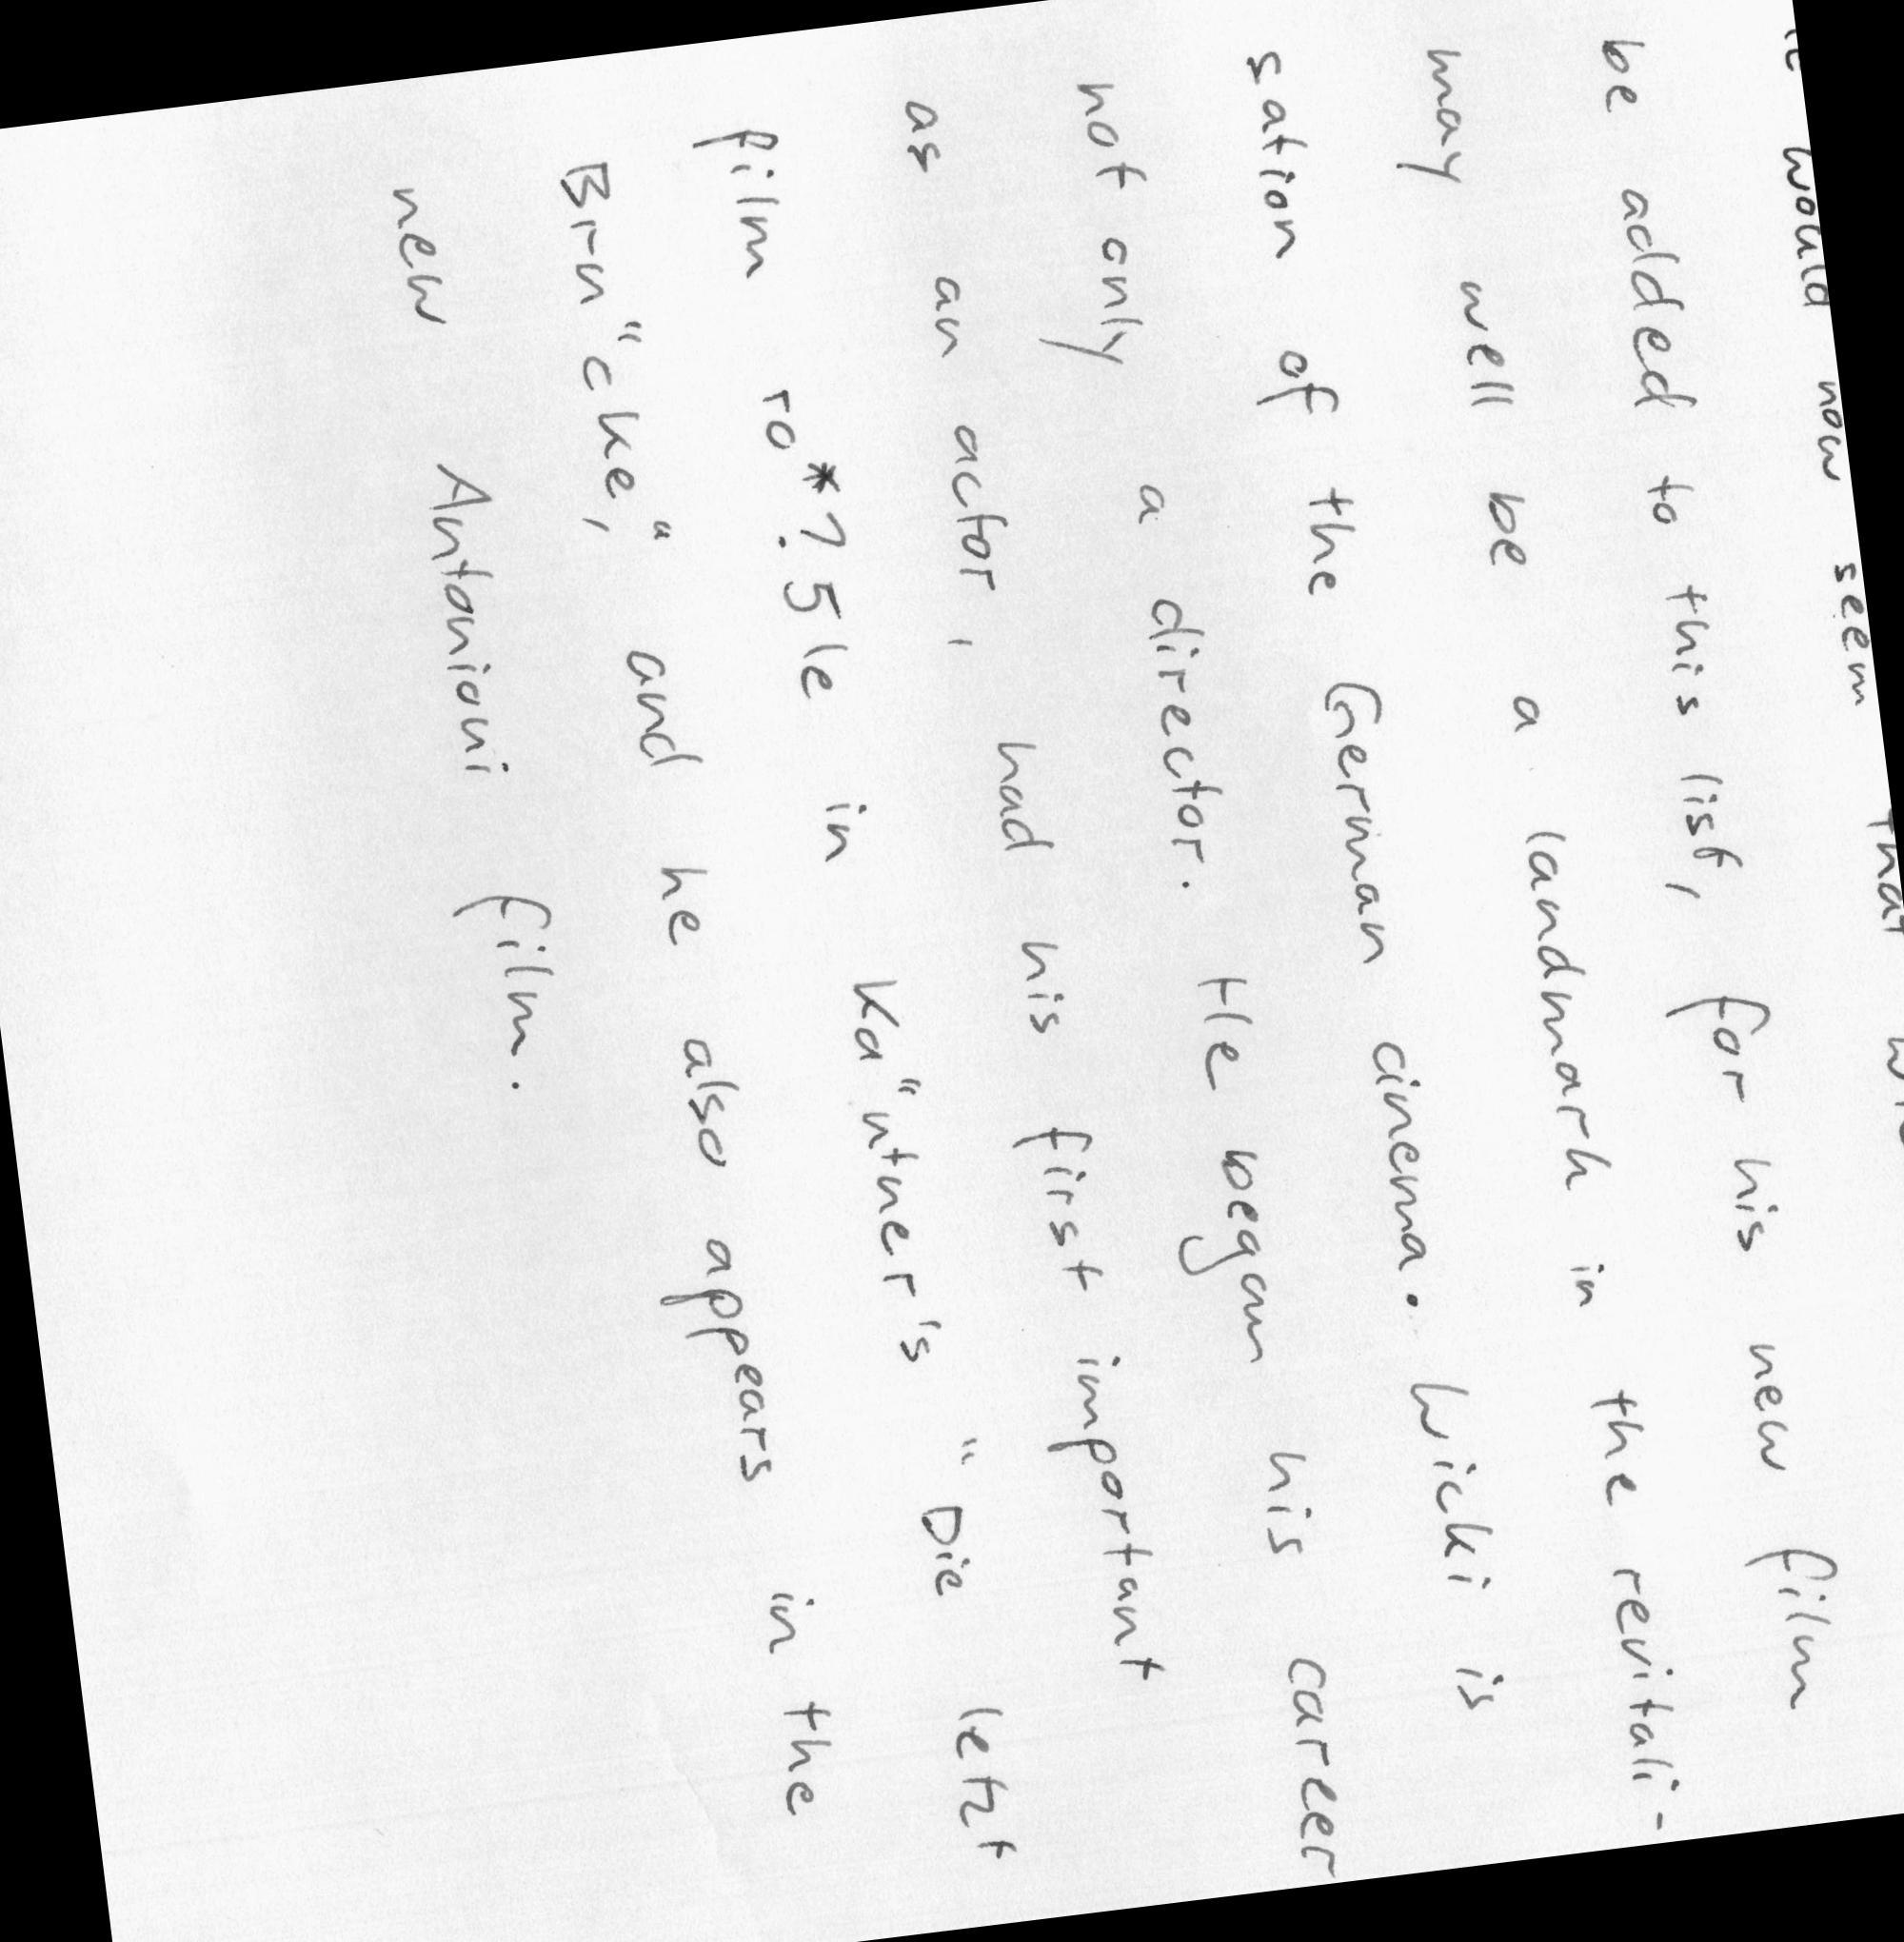 would now seem that
be added to this list, for his new film
may well be a landmark in the revitali-
sation of the German cinema. Wicki is
not only a director. He began his career
as an actor, had his first important
film ro*?5le in Ka"utner's "Die letzt
Bru"cke," and he also appears in the
new Antonioni film.